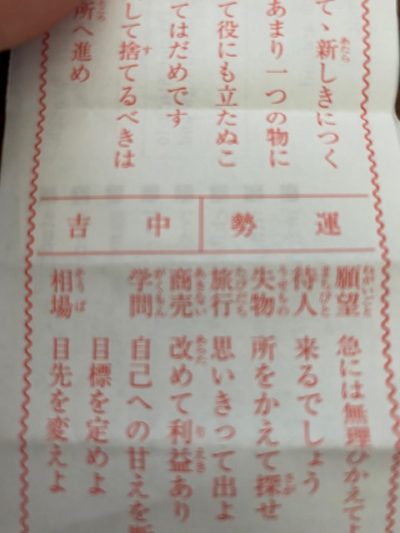 て、新しきにつく
あまり一つの物に
て役にも立たぬこ
てはだめです
して捨てるべきは
所へ進め
運勢 中吉
願望 急には無理ひかえてよ
待人 来るでしょう
失物 所をかえて探せ
旅行 思いきって出よ
商売 改めて利益あり
学問 自己への甘えを断
目標を定めよ
相場 目先を変えよ